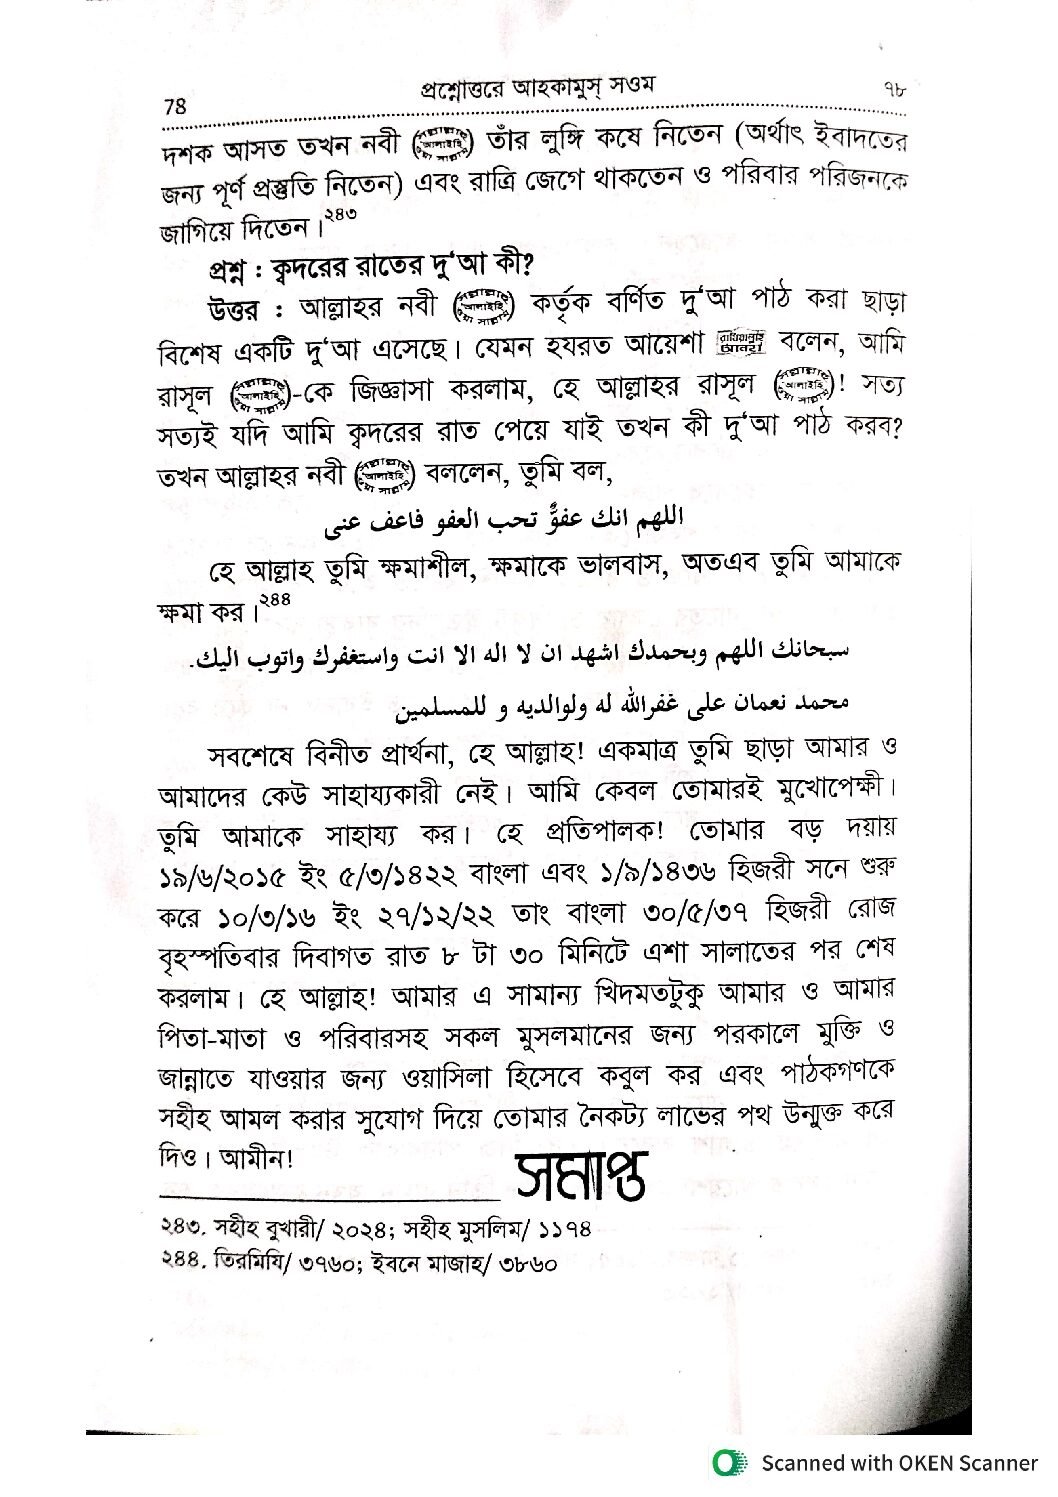 78 প্রশ্নোত্তরে আহকামুস্ সওম ৭৮
দশক আসত তখন নবী (সাল্লাল্লাহু আলাইহি ওয়া সাল্লাম) তাঁর লুঙ্গি কষে নিতেন (অর্থাৎ ইবাদতের
জন্য পূর্ণ প্রস্তুতি নিতেন) এবং রাত্রি জেগে থাকতেন ও পরিবার পরিজনকে
জাগিয়ে দিতেন।২৪৩
প্রশ্ন : ক্বদরের রাতের দু‘আ কী?
উত্তর : আল্লাহর নবী (সাল্লাল্লাহু আলাইহি ওয়া সাল্লাম) কর্তৃক বর্ণিত দু‘আ পাঠ করা ছাড়া
বিশেষ একটি দু‘আ এসেছে। যেমন হযরত আয়েশা রাযিআল্লাহু আনহা বলেন, আমি
রাসূল (সাল্লাল্লাহু আলাইহি ওয়া সাল্লাম)-কে জিজ্ঞাসা করলাম, হে আল্লাহর রাসূল (সাল্লাল্লাহু আলাইহি ওয়া সাল্লাম)! সত্য
সত্যই যদি আমি ক্বদরের রাত পেয়ে যাই তখন কী দু‘আ পাঠ করব?
তখন আল্লাহর নবী (সাল্লাল্লাহু আলাইহি ওয়া সাল্লাম) বললেন, তুমি বল,
اللهم انك عفوٌّ تحب العفو فاعف عنى
হে আল্লাহ তুমি ক্ষমাশীল, ক্ষমাকে ভালবাস, অতএব তুমি আমাকে
ক্ষমা কর।২৪৪
سبحانك اللهم وبحمدك اشهد ان لا اله الا انت واستغفرك واتوب اليك.
محمد نعمان على غفرالله له ولوالديه و للمسلمين
সবশেষে বিনীত প্রার্থনা, হে আল্লাহ! একমাত্র তুমি ছাড়া আমার ও
আমাদের কেউ সাহায্যকারী নেই। আমি কেবল তোমারই মুখোপেক্ষী।
তুমি আমাকে সাহায্য কর। হে প্রতিপালক! তোমার বড় দয়ায়
১৯/৬/২০১৫ ইং ৫/৩/১৪২২ বাংলা এবং ১/৯/১৪৩৬ হিজরী সনে শুরু
করে ১০/৩/১৬ ইং ২৭/১২/২২ তাং বাংলা ৩০/৫/৩৭ হিজরী রোজ
বৃহস্পতিবার দিবাগত রাত ৮ টা ৩০ মিনিটে এশা সালাতের পর শেষ
করলাম। হে আল্লাহ! আমার এ সামান্য খিদমতটুকু আমার ও আমার
পিতা-মাতা ও পরিবারসহ সকল মুসলমানের জন্য পরকালে মুক্তি ও
জান্নাতে যাওয়ার জন্য ওয়াসিলা হিসেবে কবুল কর এবং পাঠকগণকে
সহীহ আমল করার সুযোগ দিয়ে তোমার নৈকট্য লাভের পথ উন্মুক্ত করে
দিও। আমীন!
সমাপ্ত
২৪৩. সহীহ বুখারী/ ২০২৪; সহীহ মুসলিম/ ১১৭৪
২৪৪. তিরমিযি/ ৩৭৬০; ইবনে মাজাহ/ ৩৮৬০
Scanned with OKEN Scanner